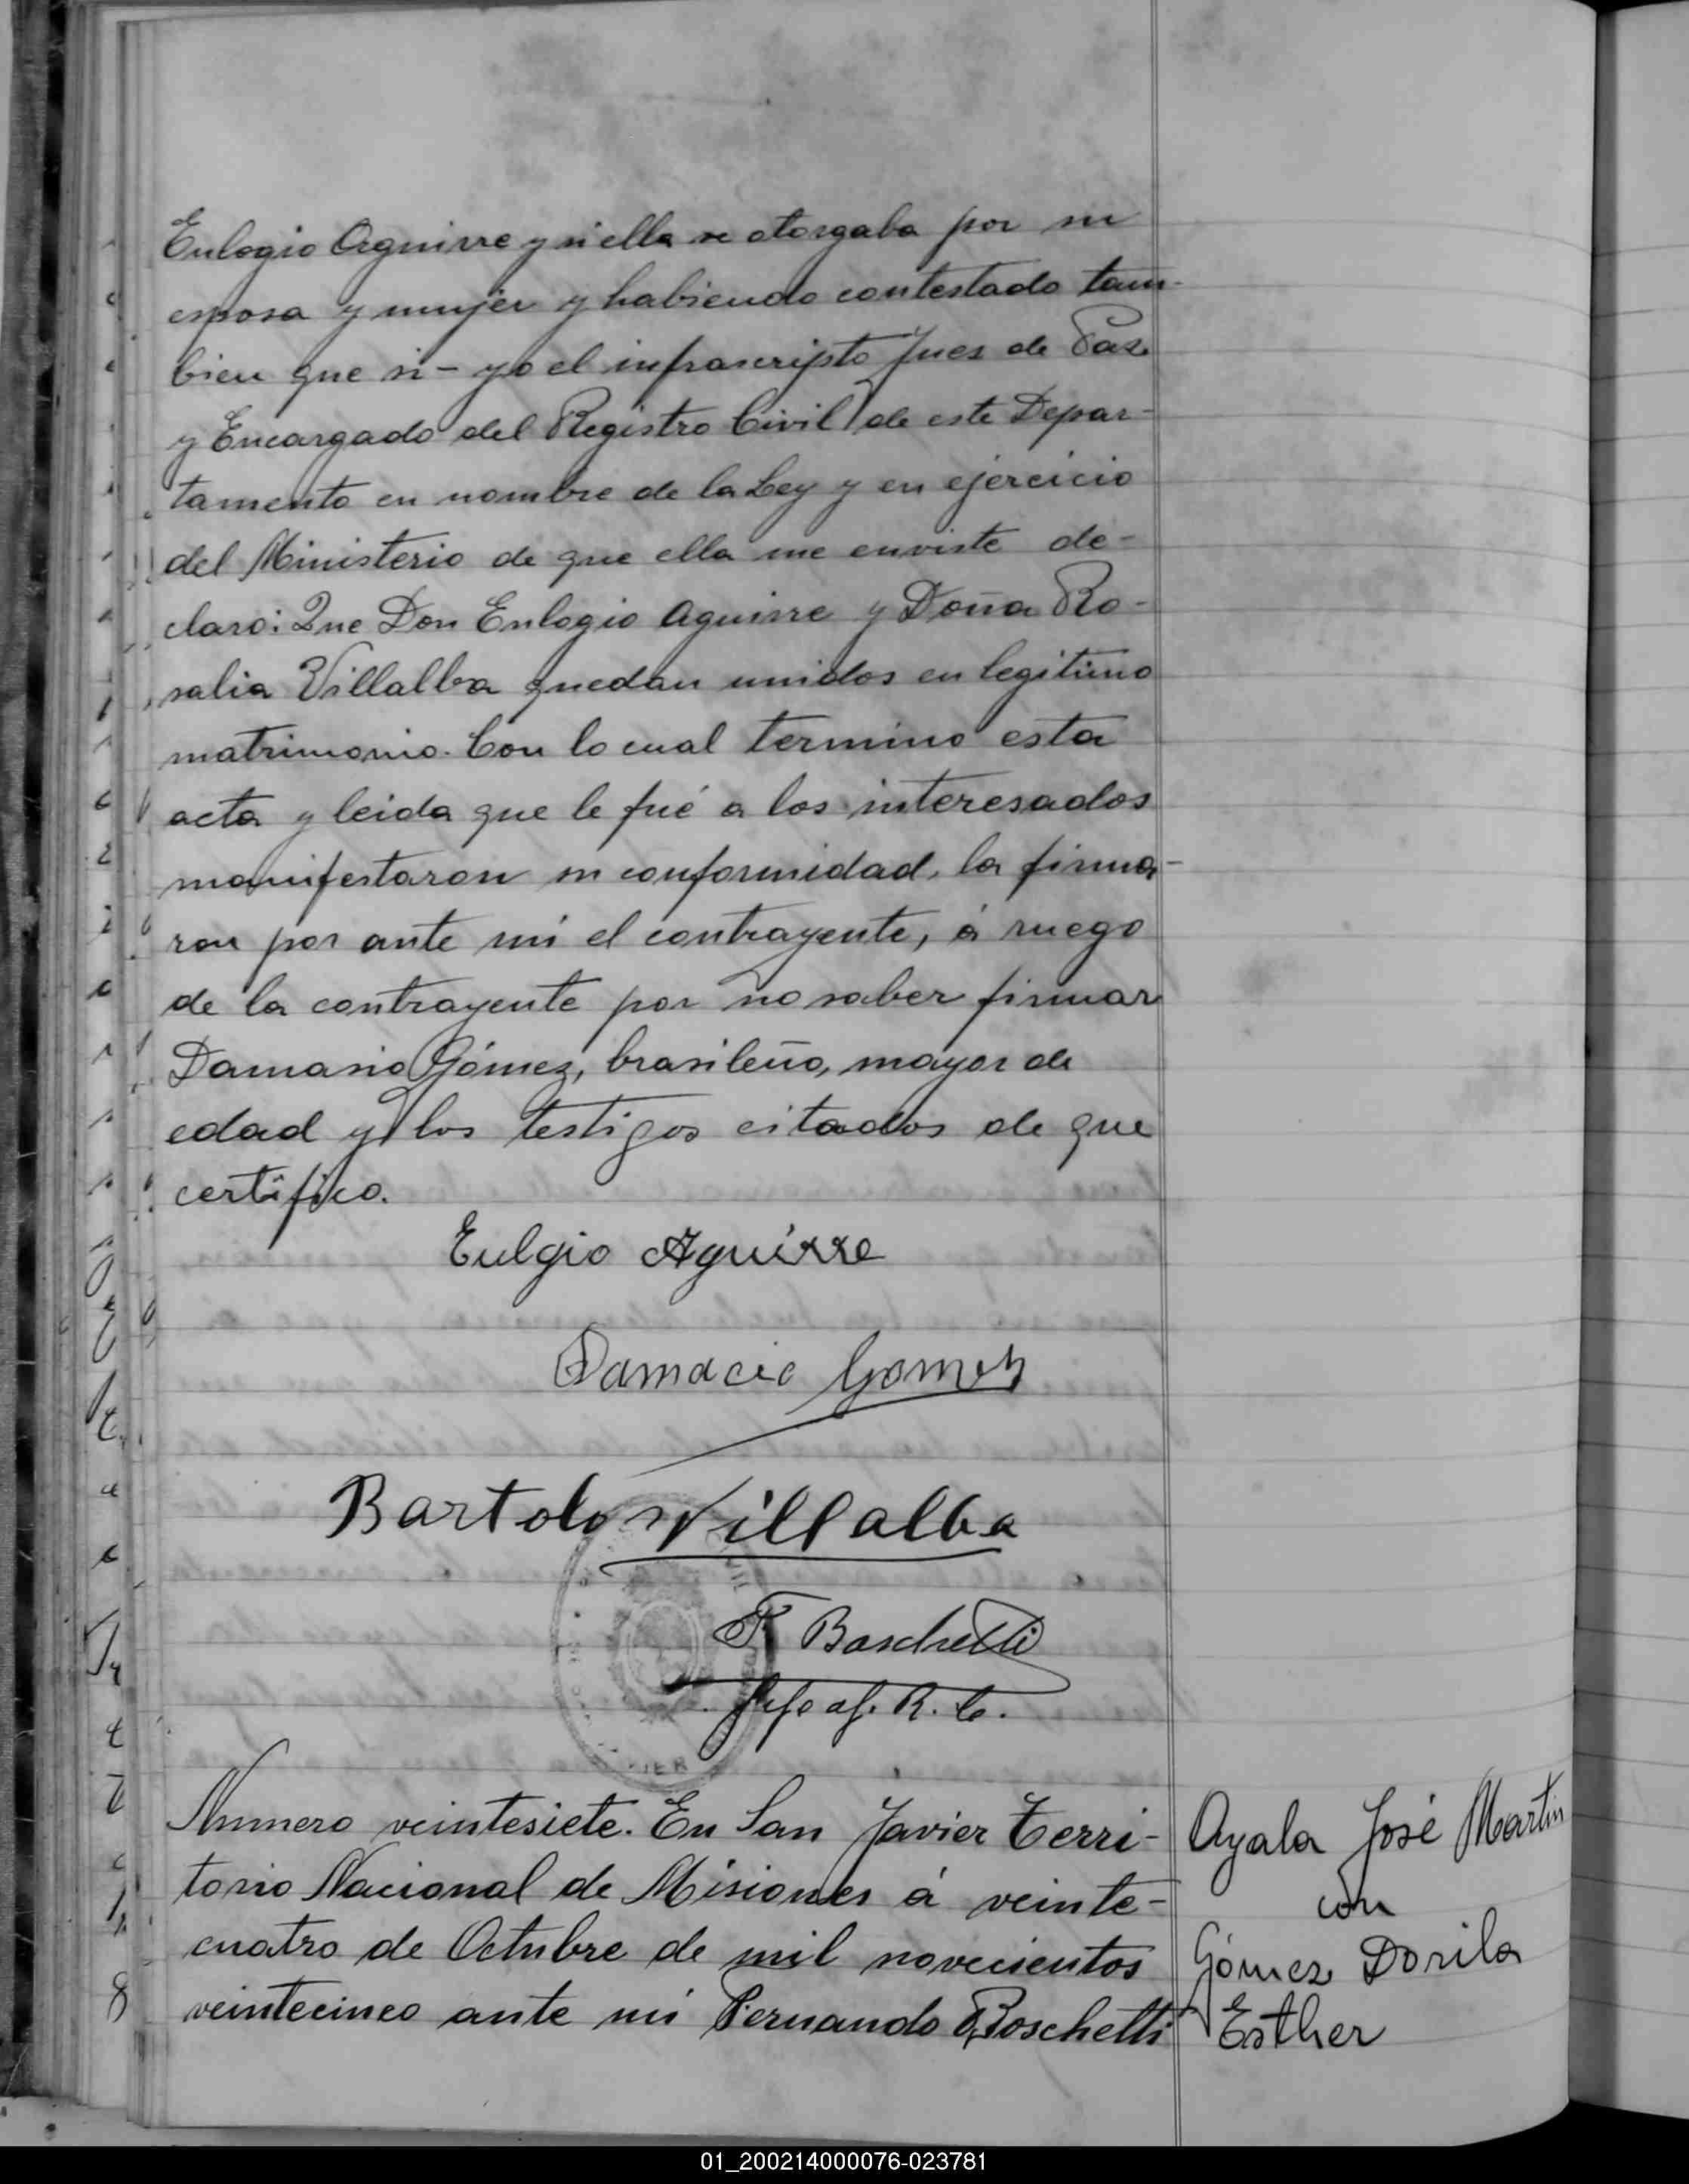 Eulogio Aguirre y si ella se otorgaba por su
esposa y mujer y habiendo contestado tam-
bien que si - yo el infrascripto Juez de Paz
y Encargado del Registro Civil de este Depar-
tamento en nombre de la Ley y en ejercicio
del Ministerio de que ella me enviste de-
claro: Que Don Eulogio Aguirre y Doña Ro-
salia Villalba quedan unidos en legitimo
matrimonio. Con lo cual termino esta
acta y leida que le fué a los interesados
manifestaron su conformidad, la firma-
ron por ante mi el contrayente, á ruego
de la contrayente por no saber firmar
Damasio Gómez, brasileño, mayor de
edad y los testigos citados de que
certifico.
Eulgio Aguirre
Damacio Gomez
Bartolo Villalba
F Boschetti
Jefe of. R. C.
Numero veintesiete. En San Javier Terri-
torio Nacional de Misiones á veinte-
cuatro de Octubre de mil novecientos
veintecinco ante mi Fernando Boschetti
Ayala José Martin
con
Gómez Dorila
Esther
01_200214000076-023781